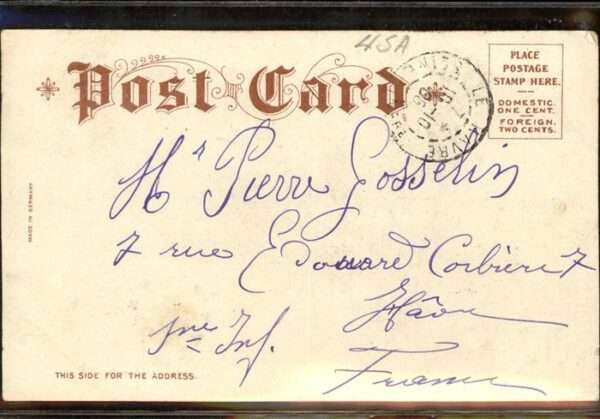 4SA
Post Card
PLACE
POSTAGE
STAMP HERE.
DOMESTIC.
ONE CENT.
FOREIGN.
TWO CENTS.
LE HAVRE
MADE IN GERMANY
Mr Pierre Gosselin
7 rue Edouard Corbière 7
Hâvre
Sne Inf.
France
THIS SIDE FOR THE ADDRESS.